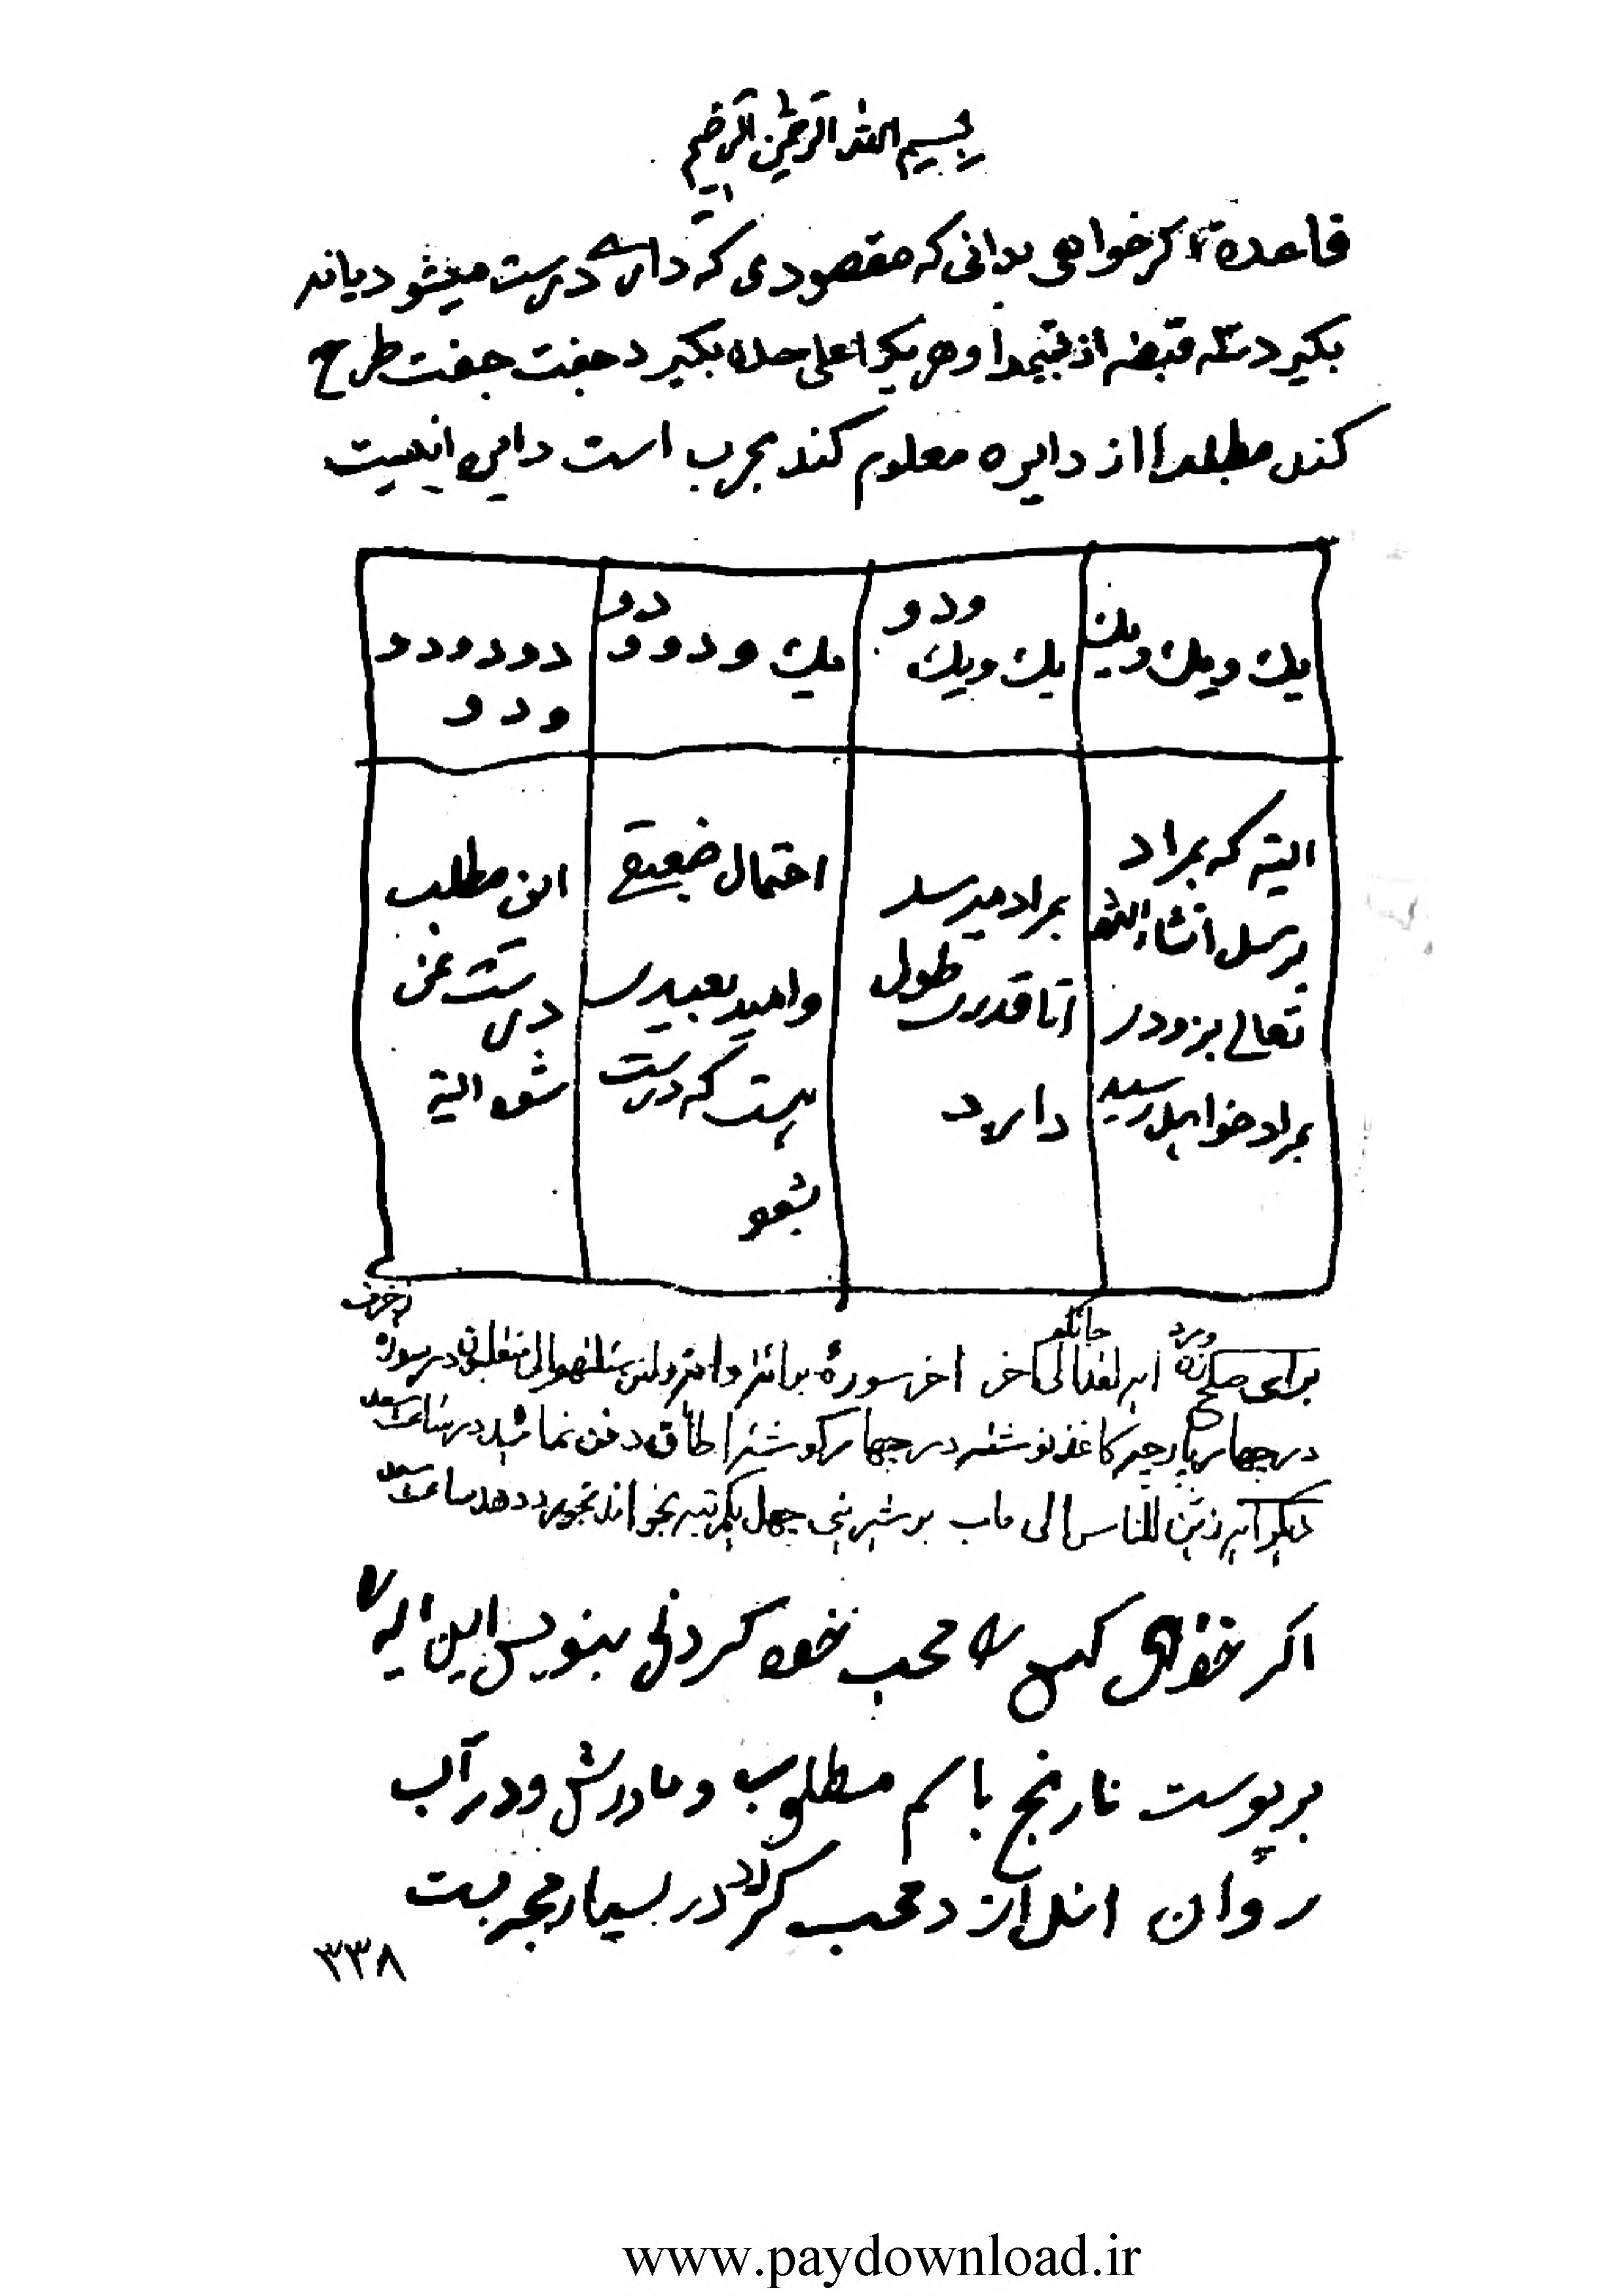 بسم الله الرحمن الرحیم
قاعده اکر خواهی بدانی که مقصودی که داری درست میشود یا نه
بکیرد سه قبضه از و هر یکرا علی حده بکیرد جفت جفت طرح
کند مطلبرا از دایره معلوم کند مجرب است دایره اینست
یك ویك ویك
یك ویك ودو
یك ودو ودو
دو ودو ودو
البته که بمراد برسد انشاءالله تعالی بزودی بمراد خواهد رسید
بمراد میرسد اما قدری طول دارد
احتمال ضعیفی و امید بعیدی هست که درست بشود
این مطلب درست نمی شود البته
برای صلح زن و مرد ایه لقد الی آخر اخر سورهٔ برائة و الی در سورهٔ زخرف
در چهار پارچه کاغذ نوشته در چهار کوشه اطاق دفن نماید در ساعت سعد
دیکر ایه زین للناس الی ماب بر شیرینی چهل یکمرتبه بخواند بخورد دهد ساعت سعد
اکر خواهی کسی را محب خود کردانی بنویس این ایه را
بر پوست نارنج باسم مطلوب و مادرش و در آب
روان اندازد محب کردد بسیار مجربست
۳۳۸
www.paydownload.ir